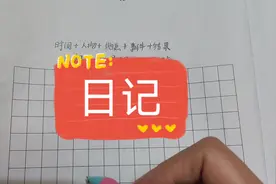 时间+人物+地点+事件+结果
NOTE:
日记